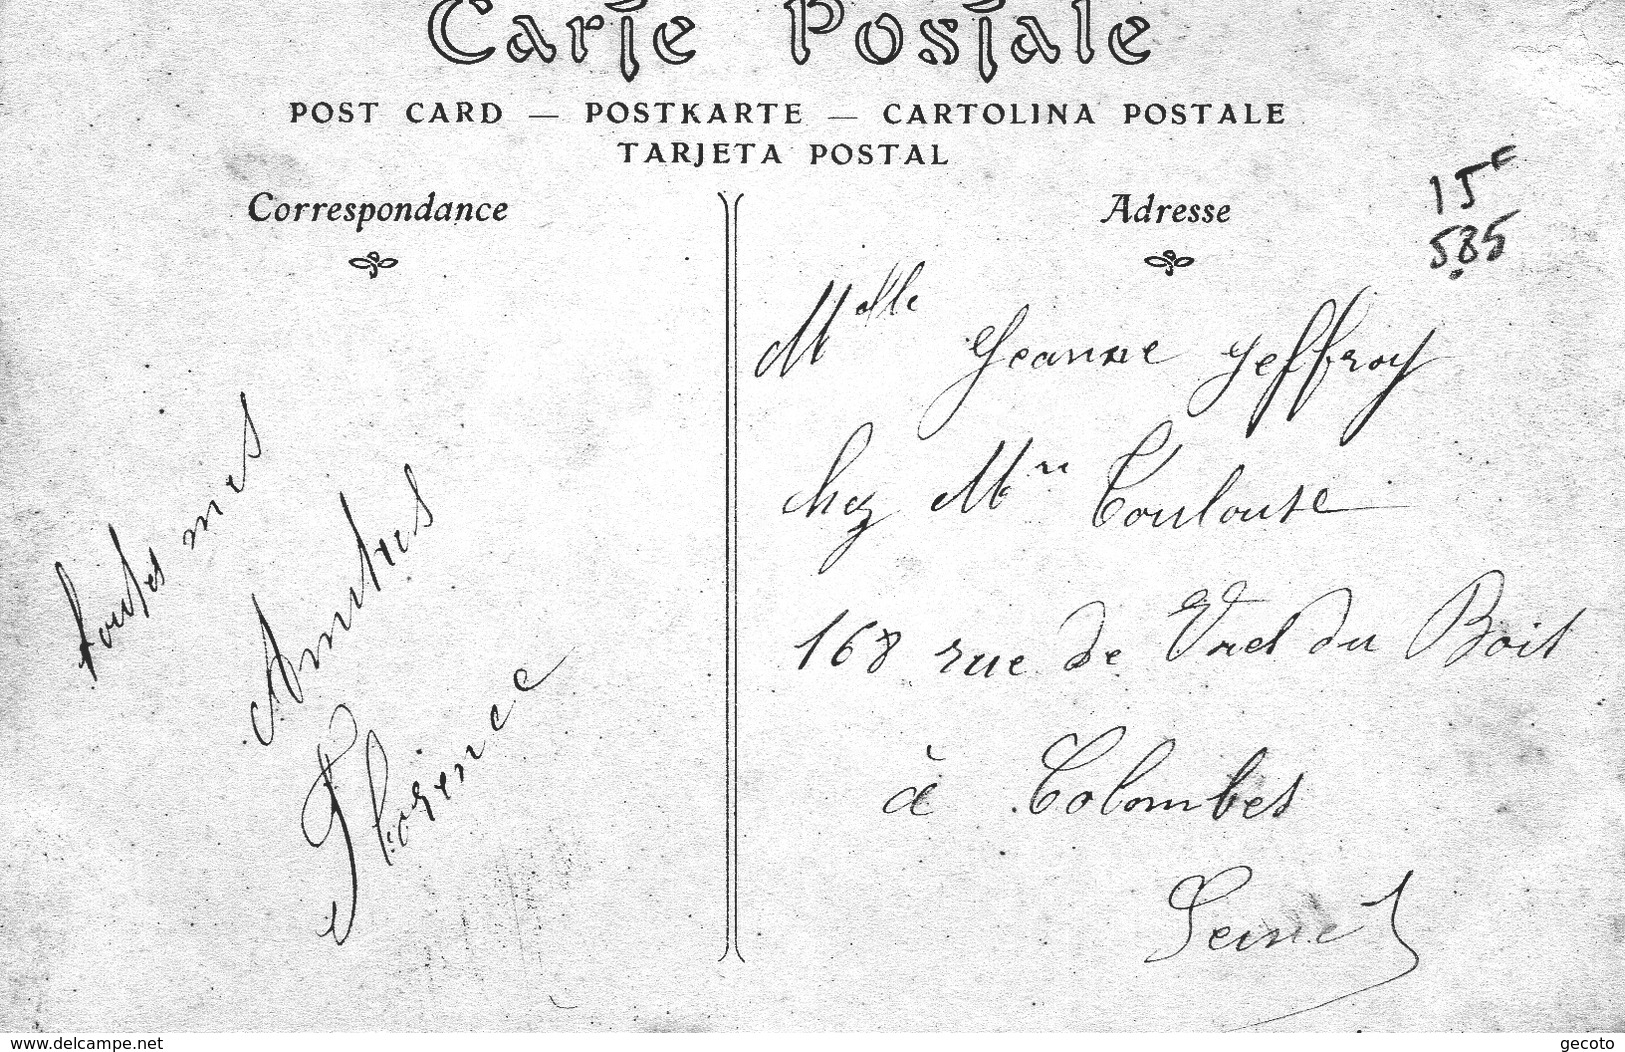 Carte Postale
POST CARD — POSTKARTE — CARTOLINA POSTALE
TARJETA POSTAL
Correspondance
toutes mes
Amitiés
Florence
Adresse
15F
585
Melle Jeanne Jeffroy
chez Mr Toulouse
168 rue de du Bois
à Colombes
Seine
www.delcampe.net
gecoto